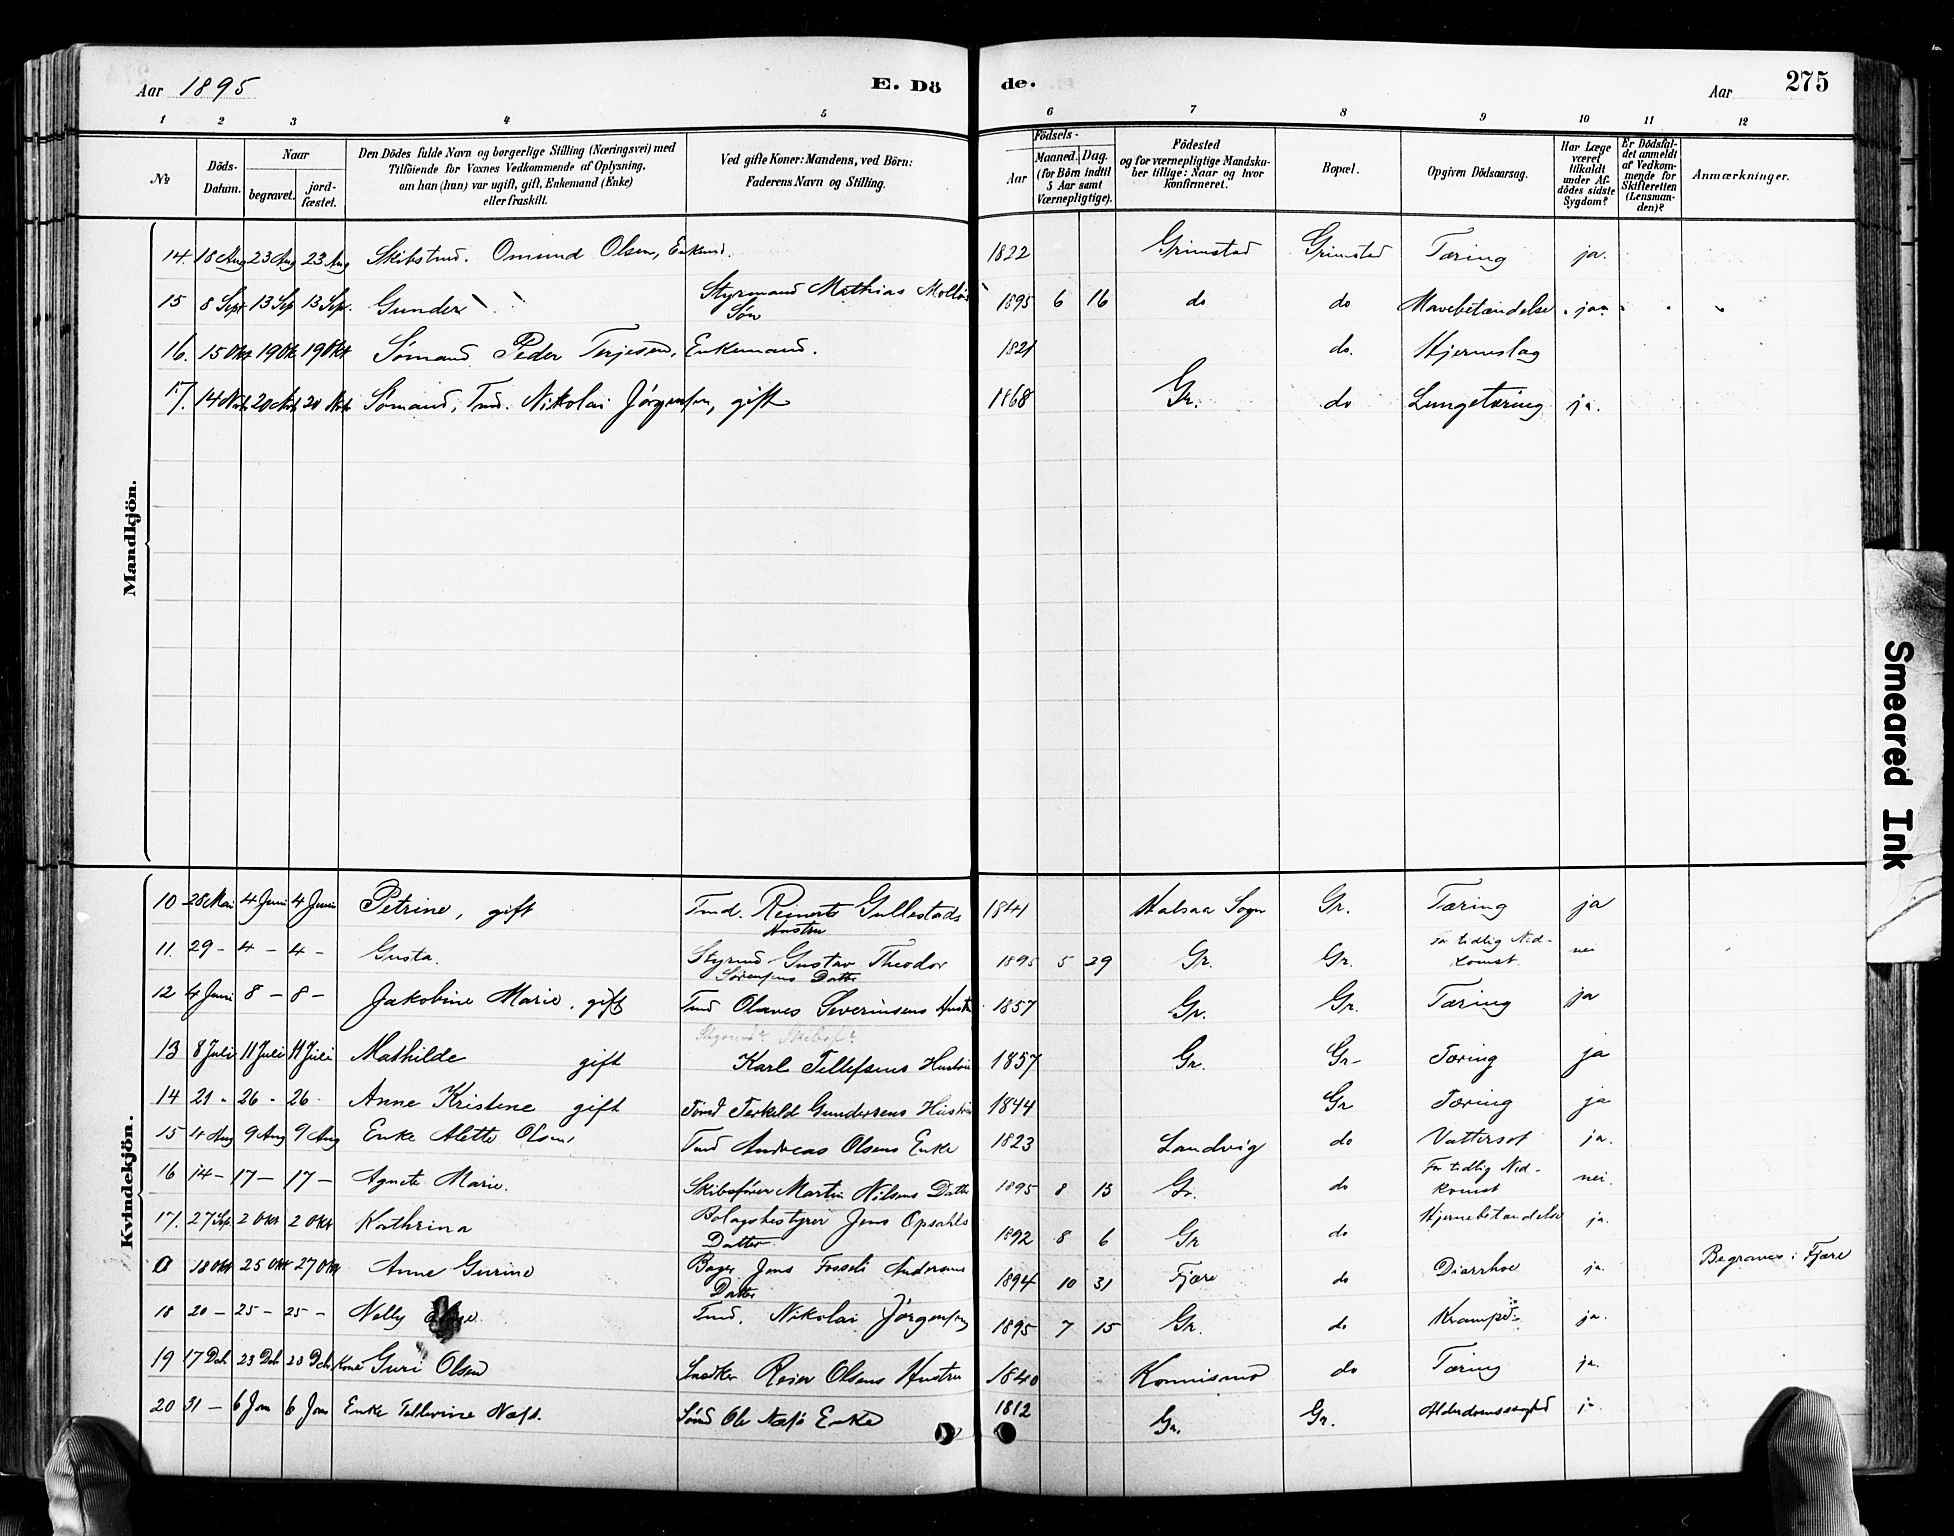 Aar 1895 E. Dö de. Aar 275
1 2 3 4 5 6 7 8 9 10 11 12
No
Döds-Datum.
Naar
begravet.
jord-fæstet.
Den Dödes fulde Navn og borgerlige Stilling (Næringsvei) med
Tilföiende for Voxnes Vedkommende af Oplysning,
om han (hun) var ugift, gift, Enkemand (Enke)
eller fraskilt.
Ved gifte Koner: Mandens, ved Börn:
Faderens Navn og Stilling.
Födsels-
Aar
Maaned. Dag.
(for Börn indtil
5 Aar samt
Værnepligtige).
Födested
og for værnepligtige Mandska-
ber tillige: Naar og hvor
konfirmeret.
Bopæl.
Opgiven Dödsaarsag.
Har Læge
været
tilkaldt
under Af-
dödes sidste
Sygdom?
Er Dödsfal-
det anmeldt
af Vedkom-
mende for
Skifteretten
(Lensman-
den)?
Anmærkninger.
Mandkjön.
14. 18 Aug 23 Aug 23 Aug Skibstmd. Omund Olsen, Enkmd. 1822 Grimstad Grimstad Tæring ja.
15 8 Sept 13 Sep 13 Sep. Gunder Styrmand Mathias Søn 1895 6 16 do do Mavebetændelse ja
16. 15 Okt 19 Ok 19 Okt Sømand Peder Terjesen, Enkemand. 1821 do. Hjerneslag
17. 14 Nob 20 Nob 20 Nob Sømand, Tmd. Nikolai Jörgensen, gift 1868 Gr. do Lungetæring ja.
Kvindekjön.
10 28 Mai 4 Juni 4 Juni Petrine, gift Tmd. Reinert Gullestads Hustru 1841 Halsaa Sogn Gr. Tæring ja
11. 29 - 4 - 4 - Gusta. Styrmd Gustav Theodor Sørensens Datter 1895 5 29 Gr. Gr. For tidlig Ned-komst nei
12 4 Juni 8 - 8 - Jakobine Marie. gift Tmd Olaves Severinsens Hustr 1857 Gr. Gr. Tæring ja
13 8 Juli 11 Juli 11 Juli Mathilde gift Karl Tellefsens Hustru 1857 Gr. Gr- Tæring ja
14 21 - 26 - 26 - Anne Kristene gift Tømd Terkild Gundersens Hustru 1844 Gr Tæring ja
15 4 Aug 9 Aug 9 Aug Enke Alette Olsen Tmd Andreas Olsens Enke 1823 Landvig do Vattersot ja.
16 14 - 17 - 17 - Agnete Marie. Skibsfører Martin Nilsens Datter 1895 8 13 Gr. do For tidlig Ned-komst nei.
17. 27 Sep. 2 Okt 2 Okt Kathrina Bolagsbestyrer Jens Opsahls Datter. 1892 8 6 Gr do Hjernebetændelse ja.
0 18 Okt 25 Okt 27 Okt Anne Gurine Bager Jens Fosseli Andersens Datter 1894 10 31 Fjære do Diarrhoe ja. Begraves i Fjære
18 20 - 25 - 25 - Nelly Tmd. Nikolai Jörgensen 1895 7 15 Gr. do Krampe ja.
19 17 Deb 23 Deb 23 Deb Kone Guri Olsen Snedker Reier Olsens Hustru 1840 Konnismo do Tæring ja.
20 31 - 6 Jan 6 Jan Enke Tellevine Næs. Sømd Ole Næs Enke 1812 Gr. Gr. Alderdomssvaghed ja
Smeared Ink